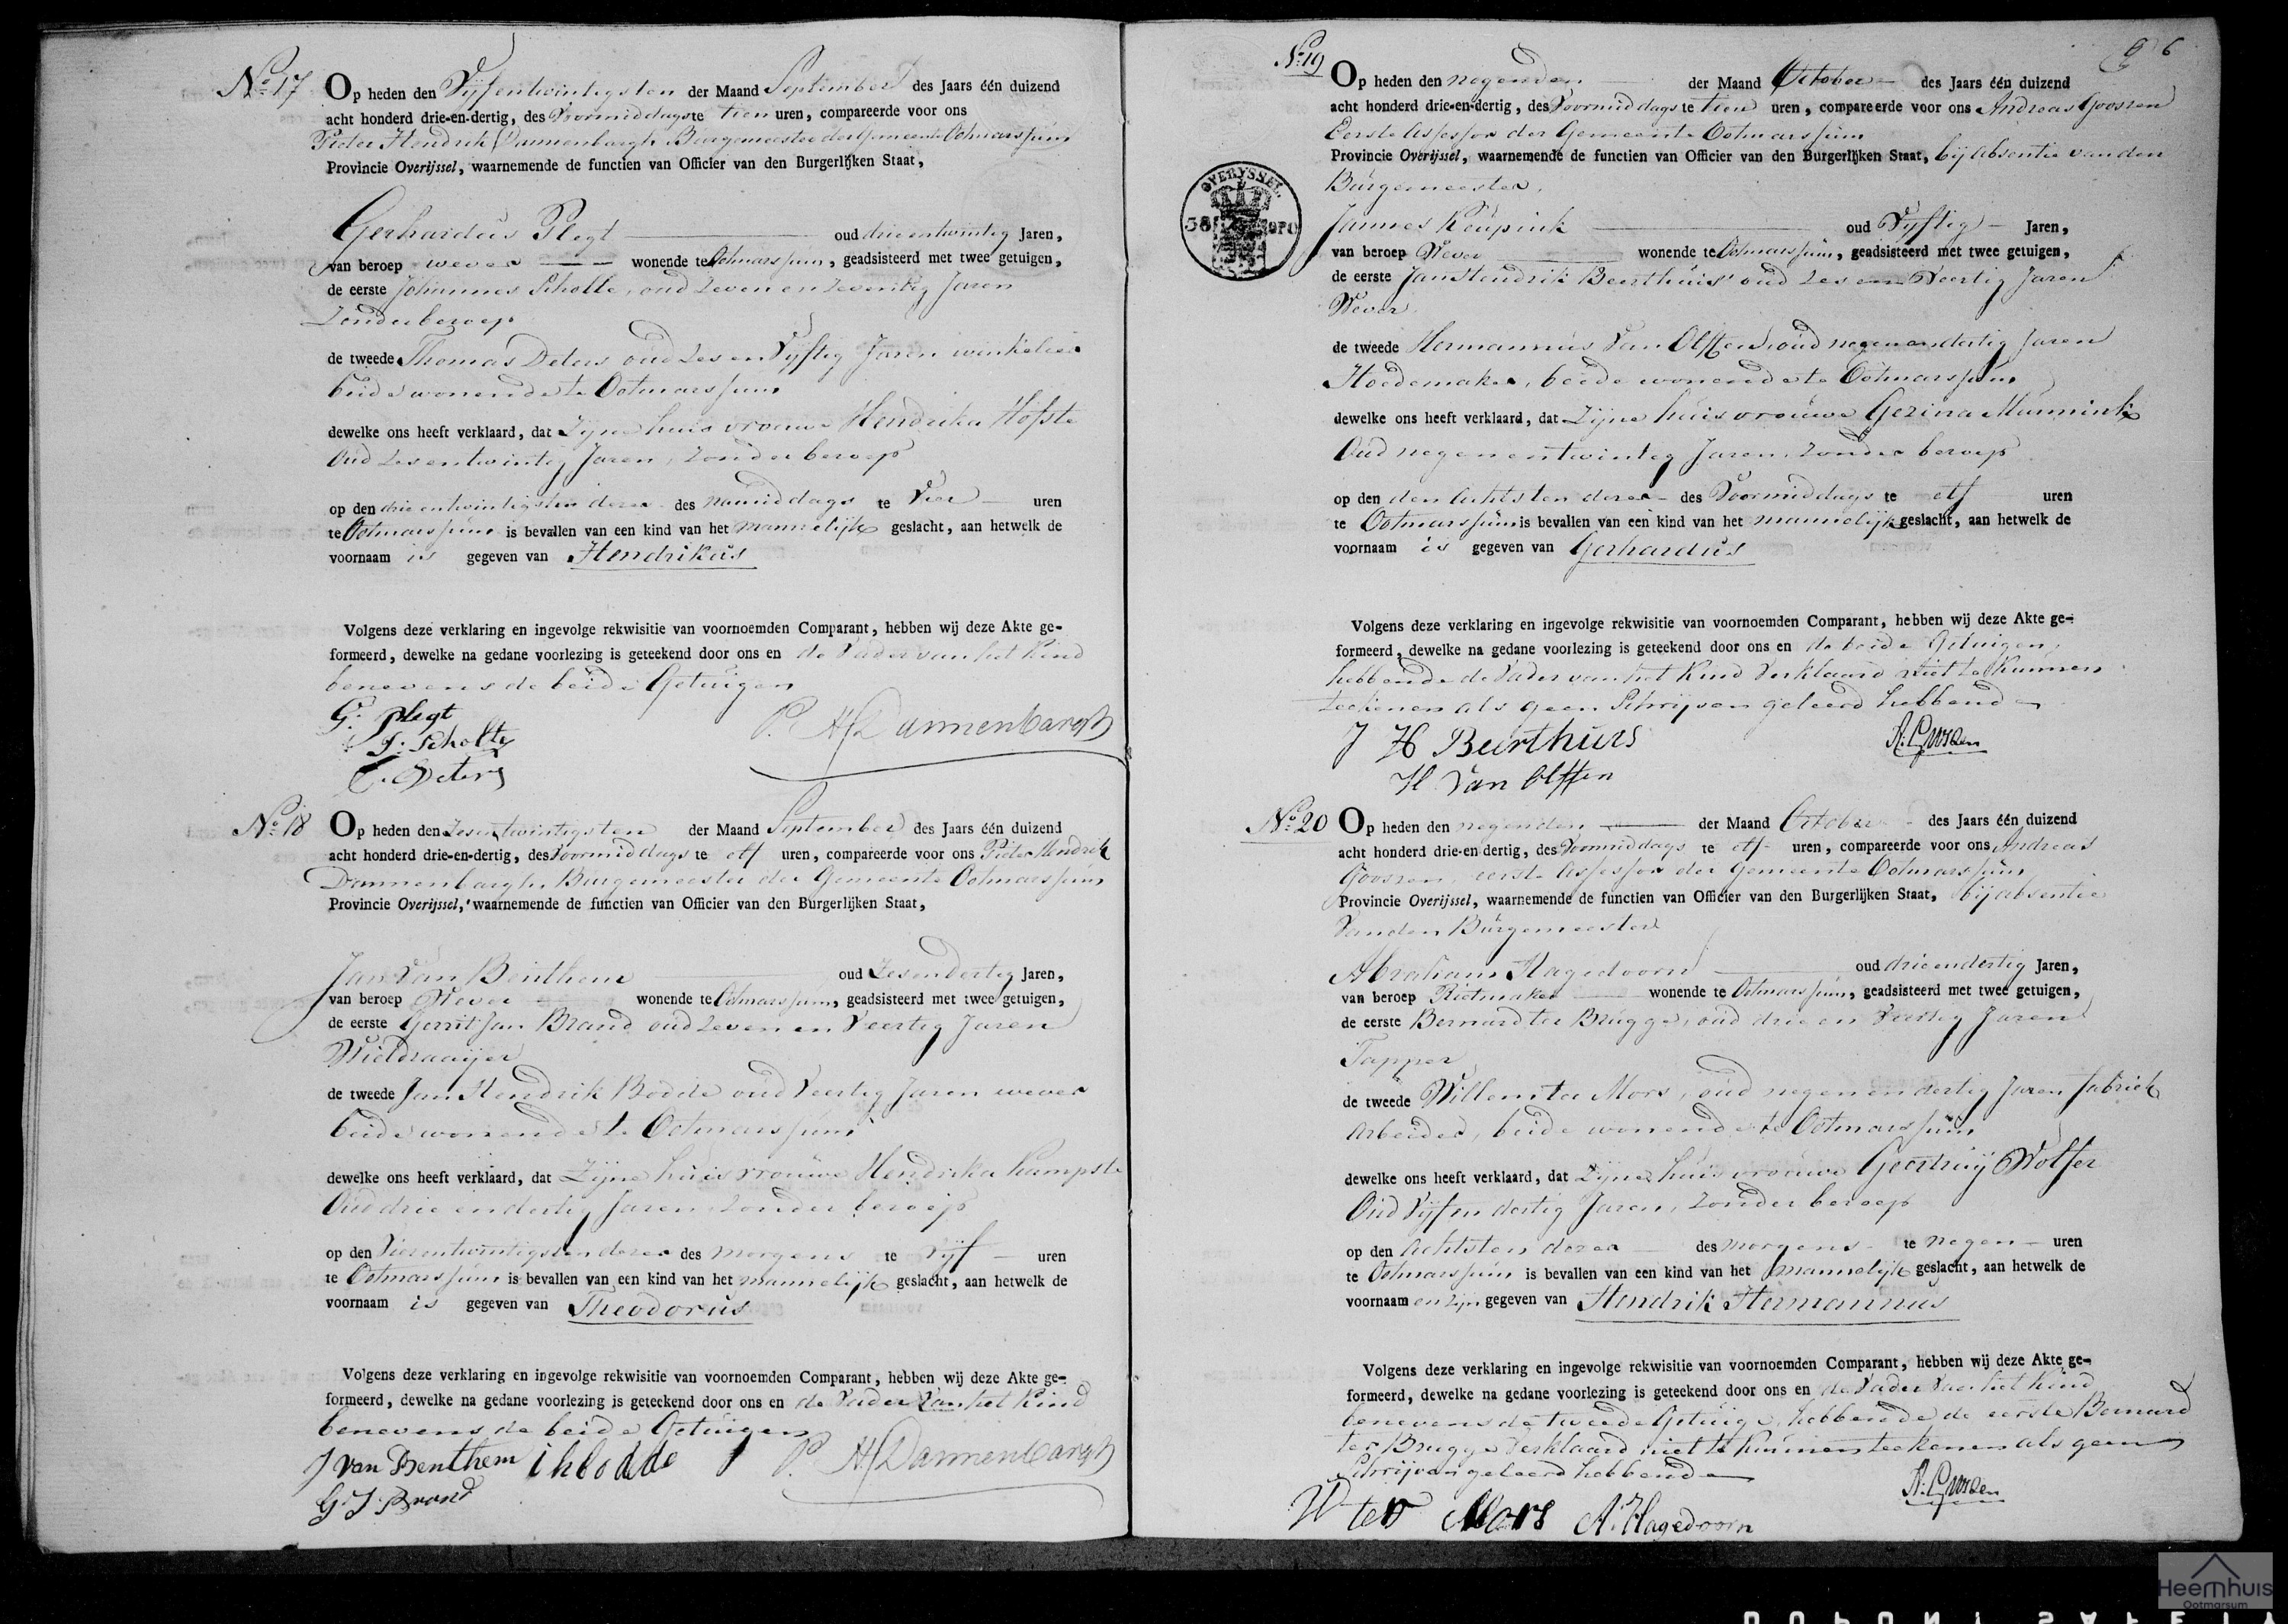 No 17 Op heden den Vijfentwintigsten der Maand September des Jaars één duizend
acht honderd drie-en-dertig, des Voormiddags te tien uren, compareerde voor ons
Pieter Hendrik Dannenbargh Burgemeester der Gemeente Ootmarssum
Provincie Overijssel, waarnemende de functien van Officier van den Burgerlijken Staat,
Gerhardus Plegt oud drieentwintig Jaren,
van beroep wever wonende te Ootmarssum, geadsisteerd met twee getuigen,
de eerste Johannes Scholte, oud zeven en zeventig Jaren
Zonder beroep
de tweede Thomas Deters oud zes en Vijftig Jaren winkelier
beide wonende te Ootmarssum
dewelke ons heeft verklaard, dat Zijne huisvrouwe Hendrika Hofste
Oud zesentwintig Jaren, zonder beroep
op den drieentwintigsten dezer des namiddags te Vier uren
te Ootmarssum is bevallen van een kind van het mannelijk geslacht, aan hetwelk de
voornaam is gegeven van Hendrikus
Volgens deze verklaring en ingevolge rekwisitie van voornoemden Comparant, hebben wij deze Akte ge-
formeerd, dewelke na gedane voorlezing is geteekend door ons en de Vader van het Kind
benevens de beide Getuigen
G: Plegt
J: Scholte P. H Dannenbargh
T. Deters
No 18 Op heden den Zesentwintigsten der Maand September des Jaars één duizend
acht honderd drie-en-dertig, des Voormiddags te elf uren, compareerde voor ons Pieter Hendrik
Dannenbargh Burgemeester der Gemeente Ootmarssum
Provincie Overijssel, waarnemende de functien van Officier van den Burgerlijken Staat,
Jan Van Benthem oud Zesendertig Jaren,
van beroep Wever wonende te Ootmarssum, geadsisteerd met twee getuigen,
de eerste Gerrit Jan Brand oud zeven en Veertig Jaren
Wieldraaijer
de tweede Jan Hendrik Bodde oud Veertig Jaren wever
beide wonende te Ootmarssum
dewelke ons heeft verklaard, dat Zijne huisvrouwe Hendrika Kampste
Oud drie en dertig Jaren, zonder beroep
op den Vierentwintigsten dezer des morgens te Vijf uren
te Ootmarssum is bevallen van een kind van het mannelijk geslacht, aan hetwelk de
voornaam is gegeven van Theodorus
Volgens deze verklaring en ingevolge rekwisitie van voornoemden Comparant, hebben wij deze Akte ge-
formeerd, dewelke na gedane voorlezing is geteekend door ons en de Vader van het Kind
benevens de beide Getuigen
J van Benthem i h bodde P. H Dannenbargh
G. J. Brand
6
No 19 Op heden den negenden der Maand October des Jaars één duizend
acht honderd drie-en-dertig, des Voormiddags te tien uren, compareerde voor ons Andreas Goossen
Eerste Assessor der Gemeente Ootmarssum
Provincie Overijssel, waarnemende de functien van Officier van den Burgerlijken Staat, bij absentie van den
Burgemeester,
OVERYSSEL
Jannes Keupink oud Vijftig Jaren,
van beroep Wever wonende te Ootmarssum, geadsisteerd met twee getuigen,
de eerste Jan Hendrik Beerthuis oud zes en Veertig Jaren
Wever
de tweede Hermannus Van Olffen, oud negenendertig Jaren
Hoedemaker, beide wonende te Ootmarssum
dewelke ons heeft verklaard, dat Zijne huisvrouwe Gezina Munnink
Oud negenentwintig Jaren, zonder beroep
op den den Achtsten dezer des Voormiddags te elf uren
te Ootmarssum is bevallen van een kind van het mannelijk geslacht, aan hetwelk de
voornaam is gegeven van Gerhardus
Volgens deze verklaring en ingevolge rekwisitie van voornoemden Comparant, hebben wij deze Akte ge-
formeerd, dewelke na gedane voorlezing is geteekend door ons en de beide Getuigen,
hebbende de Vader van het Kind Verklaard niet te Kunnen
teekenen als geen Schrijven geleerd hebbende
J H Beerthuis A. Goossen
H Van Olffen
No 20 Op heden den negenden der Maand October des Jaars één duizend
acht honderd drie-en dertig, des Voormiddags te elf uren, compareerde voor ons Andreas
Goossen, eerste Assessor der Gemeente Ootmarssum
Provincie Overijssel, waarnemende de functien van Officier van den Burgerlijken Staat, bij absentie
Van den Burgemeester
Abraham Hagedoorn oud drieendertig Jaren,
van beroep Rietmaker wonende te Ootmarssum, geadsisteerd met twee getuigen,
de eerste Bernard ter Brugge, oud drie en Veertig Jaren
Tapper
de tweede Willem ter Mors, oud negenendertig Jaren fabriek
Arbeider, beide wonende te Ootmarssum
dewelke ons heeft verklaard, dat Zijne huisvrouwe Geertruij Wolfer
Oud Vijfendertig Jaren, zonder beroep
op den Achtsten dezer des morgens te negen uren
te Ootmarssum is bevallen van een kind van het mannelijk geslacht, aan hetwelk de
voornaamen zijn gegeven van Hendrik Hermannus
Volgens deze verklaring en ingevolge rekwisitie van voornoemden Comparant, hebben wij deze Akte ge-
formeerd, dewelke na gedane voorlezing is geteekend door ons en de Vader Van het Kind
benevens de tweede Getuige, hebbende de eerste Bernard
ter Brugge Verklaard niet te Kunnen teekenen als geen
Schrijven geleerd hebbende
A. Goossen
W ter Mors A. Hagedoorn
Heemhuis
Ootmarsum